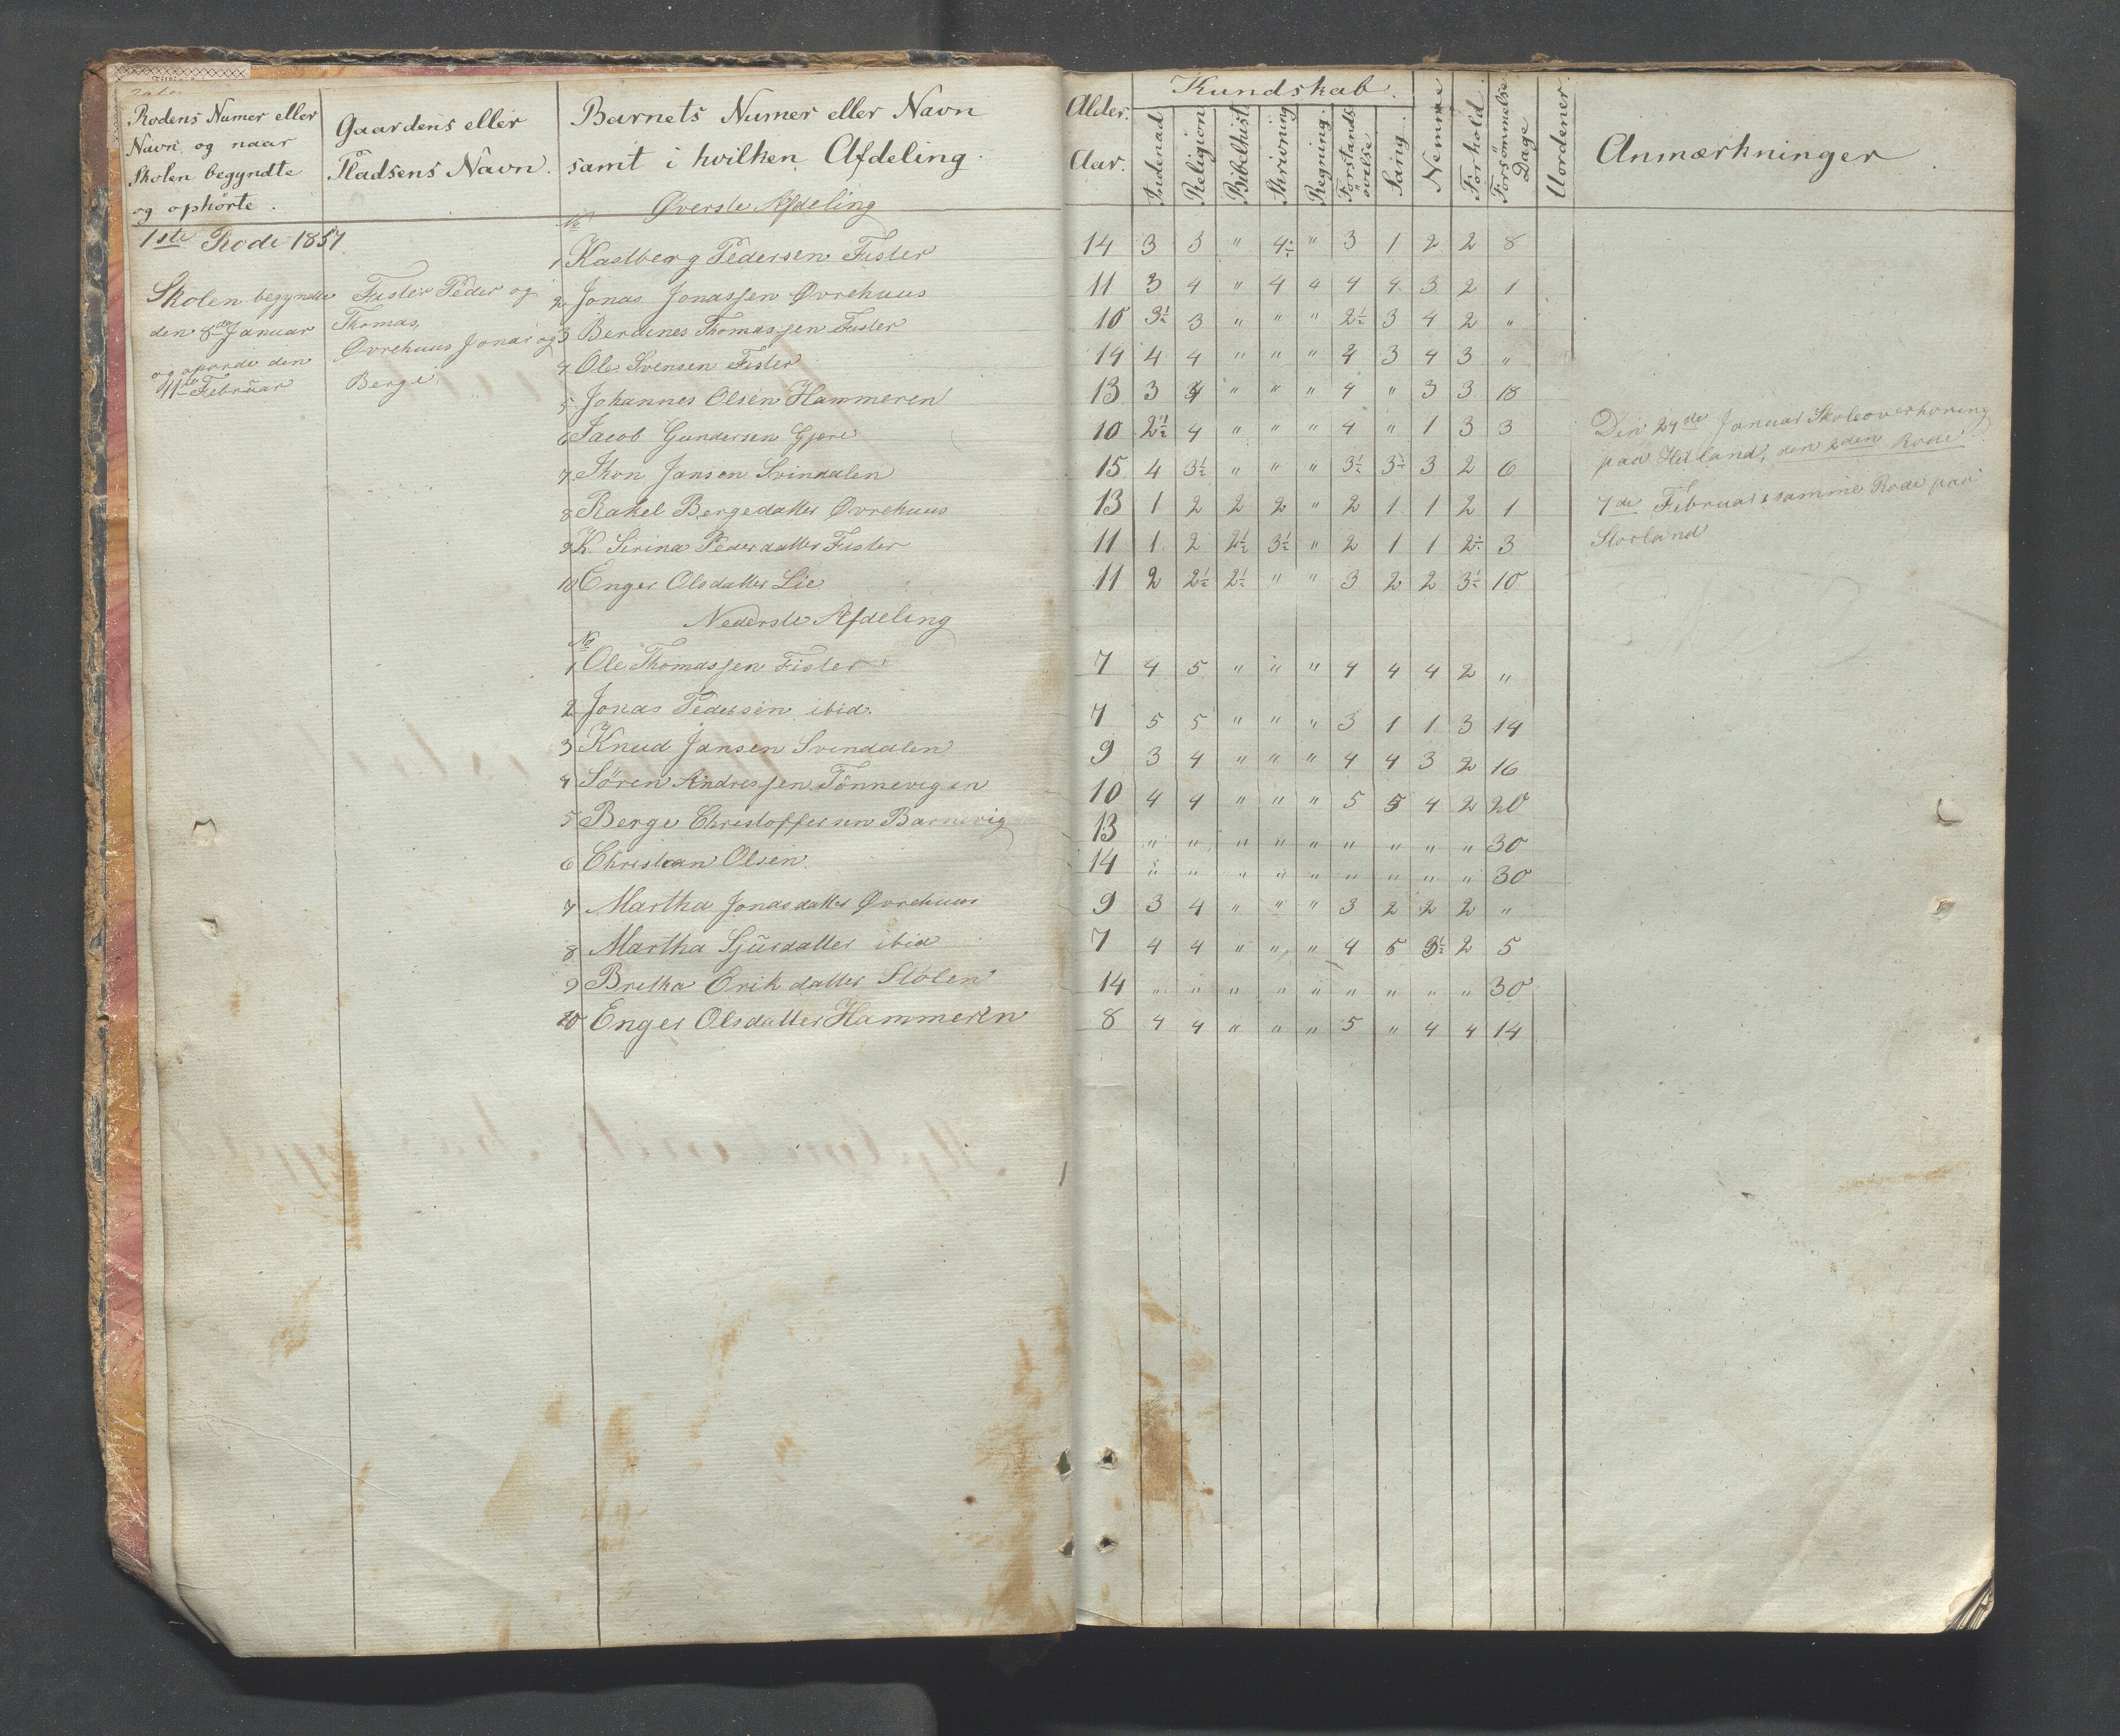 Rodens Numer eller
Navn og naar
Skolen begyndte
og ophörte.
Gaardens eller
Pladsens Navn.
Barnets Numer eller Navn
samt i hvilken Afdeling.
Alder.
Aar.
Kundskab.
Indenad
Religion
Bibelhist
Skrivning
Regning.
Forstands
övelse
Sang.
Nemme
Forhold
Forsömmelse
Dage
Uordener
Anmærkninger
1ste Rode 1857
Skolen begyndte
den 8de Januar
og den
11te Februar
Fister Peder og
Thomas,
Øvrehuus Jonas og
Berge
Øverste Afdeling
No
1 Kastberg Pedersen Fister 14 3 3 " 4÷ " 3 1 2 2 8
2 Jonas Jonassen Øvrehuus 11 3 4 " 4 4 4 4 3 2 1
3 Berdines Thomassen Fister 10 3½ 3 " " " 2½ 3 4 2 "
4 Ole Svensen Fister 14 4 4 " " " 4 3 4 3 "
5 Johannes Olsen Hammeren 13 3 4 " " " 4 " 3 3 18
6 Jacob Gundersen Gjære 10 2½ 4 " " " 4 " 1 3 3
7 Thon Jansen Svindalen 15 4 3½ " " " 3½ 3½ 3 2 6
8 Rakel Bergedatter Øvrehuus 13 1 2 2 2 " 2 1 1 2 1
9 K. Serina Pedersdatter Fister 11 1 2 2½ 3½ " 2 1 1 2÷ 3
10 Enger Olsdatter Lie 11 2 2½ 2½ " " 3 2 2 3½ 10
Nederste Afdeling
No
1 Ole Thomassen Fister 7 4 5 " " " 4 4 4 2 "
2 Jonas Pedersen ibid. 7 5 5 " " " 3 1 1 3 14
3 Knud Jansen Svindalen 9 3 4 " " " 4 4 3 2 16
4 Sören Andressen Tönnevigen 10 4 4 " " " 5 5 4 2 20
5 Berge Christoffersen Barnevig 13 " " " " " " " " " 30
6 Christian Olsen 14 " " " " " " " " " 30
7 Martha Jonasdatter Øvrehuus 9 3 4 " " " 3 2 2 2 "
8 Martha Sjursdatter ibid 7 4 4 " " " 4 5 3½ 2 5
9 Bretha Erikdatter Stölen 14 " " " " " " " " " 30
10 Enger Olsdatter Hammeren 8 4 4 " " " 5 " 4 4 14
Den 29de Januar Skoleoverhöring
paa Hetland, den 2den Rode
7de Februar samme Rode paa
Storland